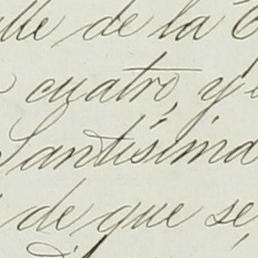 lle de la
cuatro, y
Santísima
de que se